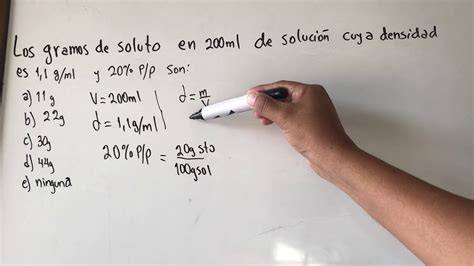 Los gramos de soluto en 200ml de solución cuya densidad
es 1,1 g/ml y 20% P/P son:
a) 11g
b) 22g
c) 30g
d) 44g
e) ninguna
V=200ml
d=1,1g/ml
20% P/P = 20g sto / 100g sol
d = m / V